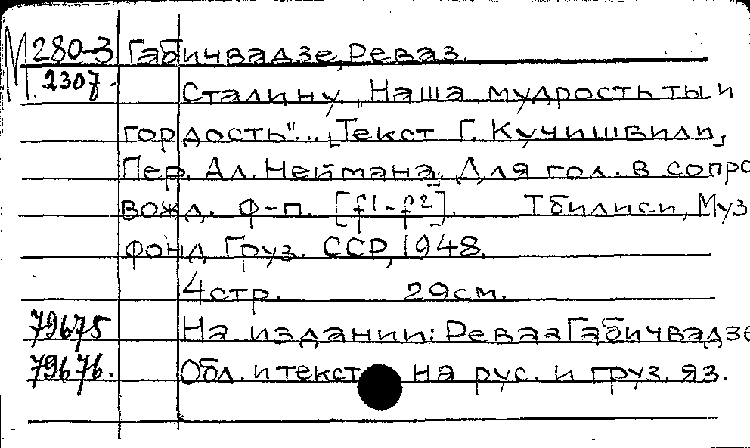 М 280-3 Габичвадзе, Реваз.
1.2307. Сталину „Наша мудрость ты и
гордость"... [Текст Г. Кучишвили,
Пер. Ал. Неймана. Для гол. в сопро
вожд. ф-п. [f1-f2]. Тбилиси, Муз
фонд Груз. ССР, 1948.
4стр. 29см.
79675 На издании: Реваз Габичвадзе
79676. Обл. и текст на рус. и груз. яз.